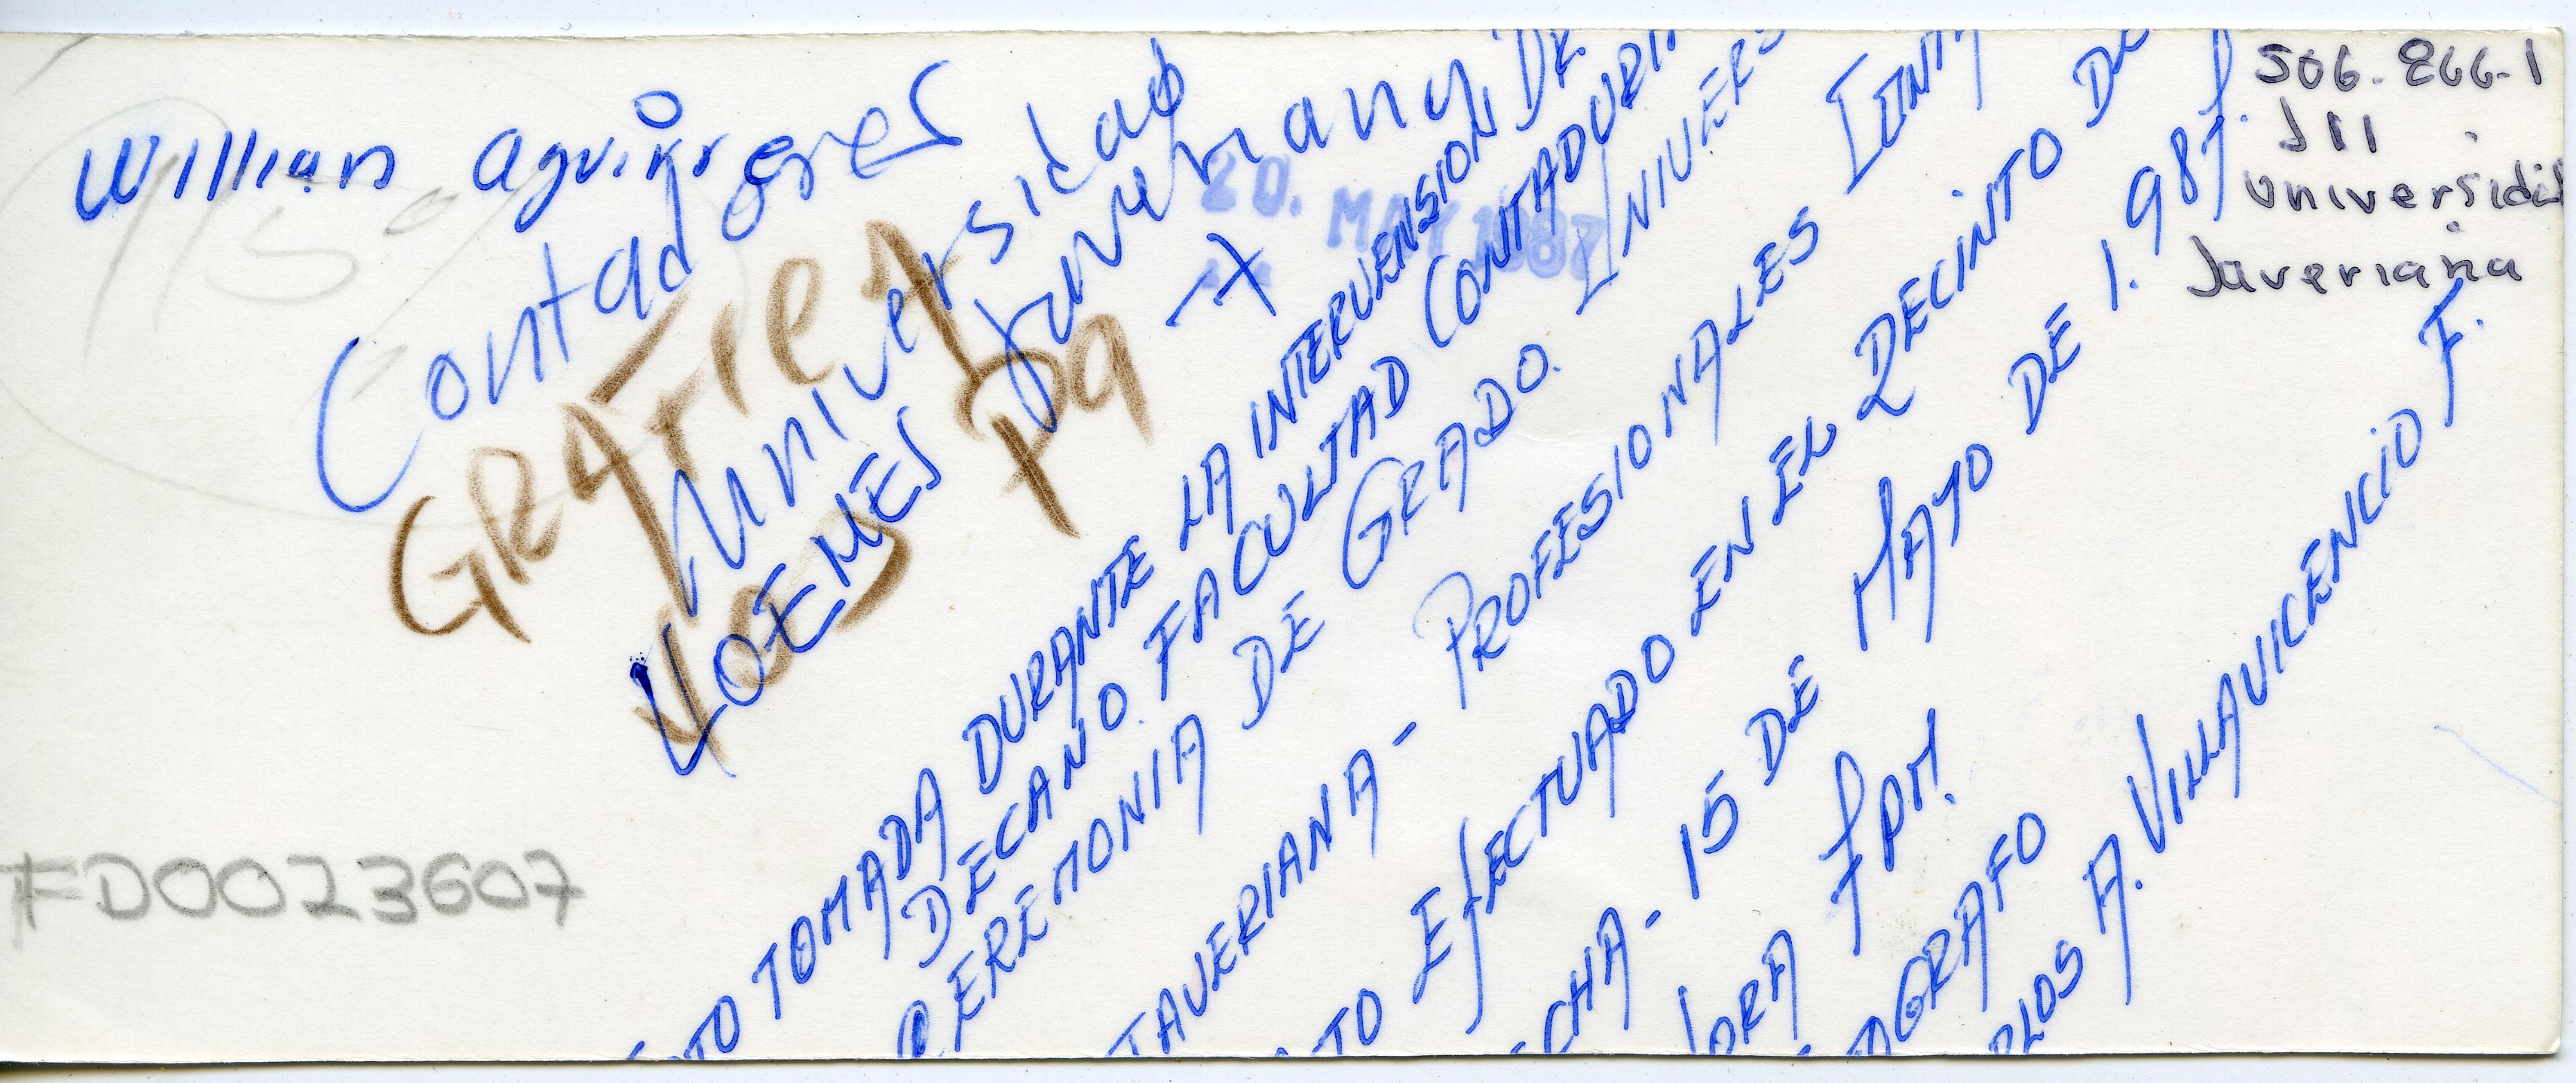 Willian Aguirre
Contadores
Universidad
Javeriana
GRATIEA
Pa
20. MAY 1987
506.866-1
J11
Universidad
Javeriana
OTO TOMADA DURANTE LA INTERVENSION DE
DECANO. FACULTAD CONTADURI
CEREMONIA DE GRADO. UNIVERS
JAVERIANA - PROFESIONALES
TO EFECTUADO EN EL RECINTO DE
CHA - 15 DE MAYO DE 1.987.
ORA 7 PM.
OGRAFO
RLOS A. VILLAVICENCIO F.
FD0023607